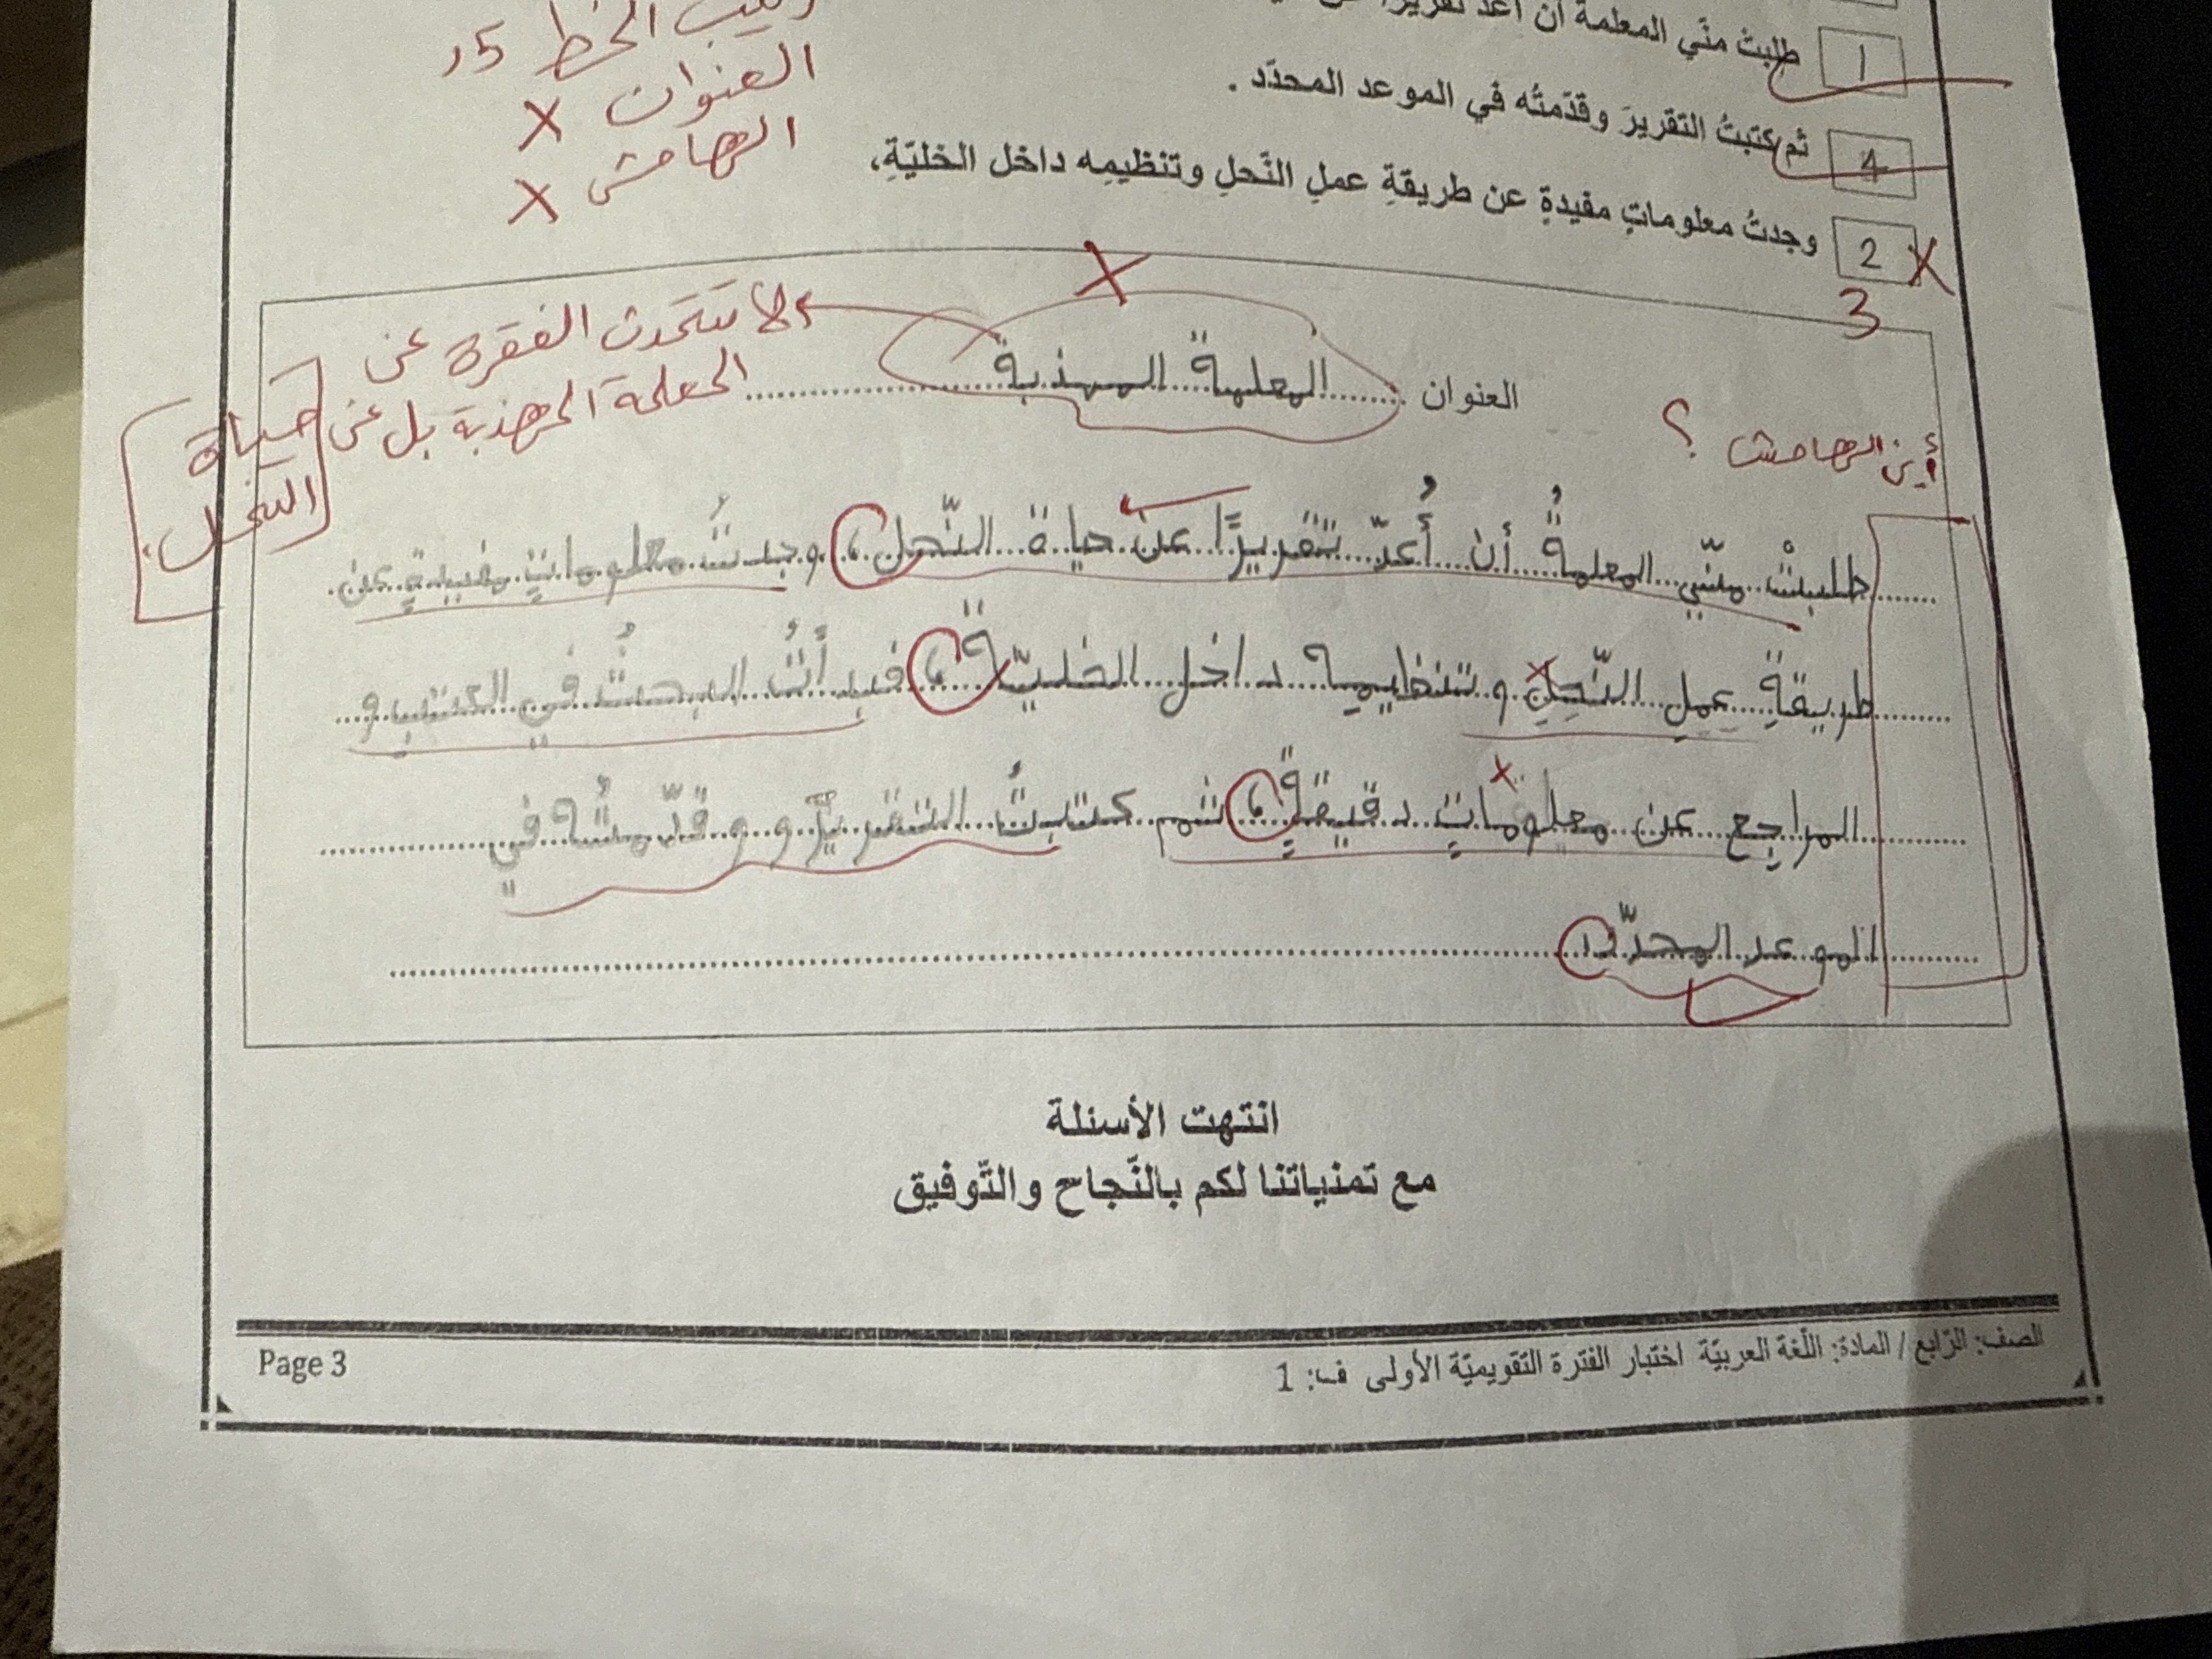 طلبتْ منّي المعلمة أن أعدّ
1
ثم كتبتُ التقريرَ وقدّمتُه في الموعد المحدّد .
4
وجدتُ معلوماتٍ مفيدةٍ عن طريقةِ عملِ النّحلِ وتنظيمِه داخل الخليّةِ،
2 X
3
الخط 5ر
العنوان X
الهامش X
X
لا تتحدث الفقرة عن
المعلمة المهذبة بل عن حياة
النحل.
العنوان المعلمة المهذبة
أين الهامش ؟
طلبتْ منّي المعلمةُ أن أُعدّ تقريرًا عن حياة النّحل، وجدتُ معلوماتٍ مفيدةٍ عن
طريقةِ عملِ النّحلِ وتنظيمِه داخل الخليّة، فبدأتُ البحثُ في الكتب و
المراجع عن معلوماتٍ دقيقةٍ، ثم كتبتُ التقريرَ و وقدّمتُه في
الموعد المحدّد.
انتهت الأسئلة
مع تمنياتنا لكم بالنّجاح والتّوفيق
الصف: الرّابع / المادة: اللّغة العربيّة اختبار الفترة التقويميّة الأولى ف: 1
Page 3